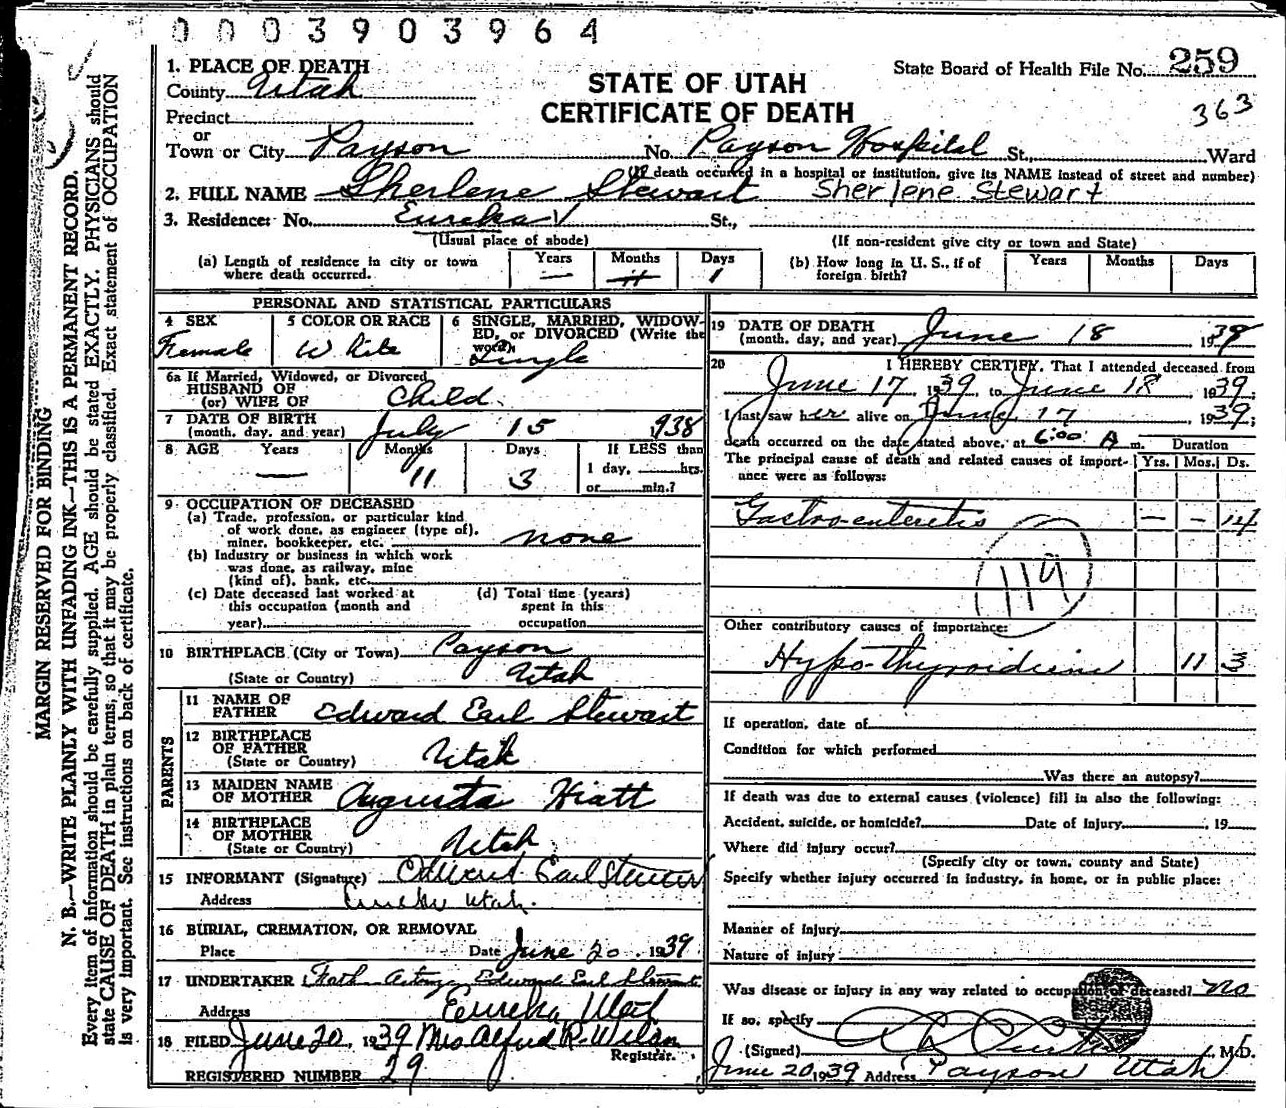 0003903964
1. PLACE OF DEATH
County Utah
STATE OF UTAH
CERTIFICATE OF DEATH
State Board of Health File No. 259
363
Precinct
or
Town or City Payson No. Payson Hospital St., Ward
(If death occurred in a hospital or institution, give its NAME instead of street and number)
2. FULL NAME Sherlene Stewart Sherlene Stewart
3. Residence: No. Eureka St.,
(Usual place of abode) (If non-resident give city or town and State)
(a) Length of residence in city or town where death occurred. Years — Months Days 1
(b) How long in U. S., if of foreign birth? Years Months Days
PERSONAL AND STATISTICAL PARTICULARS
4 SEX Female
5 COLOR OR RACE White
6 SINGLE, MARRIED, WIDOWED, or DIVORCED (Write the word) Single
6a If Married, Widowed, or Divorced
HUSBAND OF
(or) WIFE OF Child.
7 DATE OF BIRTH
(month, day, and year) July 15 938
8 AGE Years — Months 11 Days 3 If LESS than
1 day, hrs.
or min.?
9 OCCUPATION OF DECEASED
(a) Trade, profession, or particular kind
of work done, as engineer (type of),
miner, bookkeeper, etc. none
(b) Industry or business in which work
was done, as railway, mine
(kind of), bank, etc.
(c) Date deceased last worked at
this occupation (month and
year)
(d) Total time (years)
spent in this
occupation
10 BIRTHPLACE (City or Town) Payson
(State or Country) Utah
PARENTS
11 NAME OF
FATHER Edward Earl Stewart
12 BIRTHPLACE
OF FATHER
(State or Country) Utah
13 MAIDEN NAME
OF MOTHER Augusta Hiatt
14 BIRTHPLACE
OF MOTHER
(State or Country) Utah
15 INFORMANT (Signature) Edward Earl Stewart
Address Eureka Utah.
16 BURIAL, CREMATION, OR REMOVAL
Place Date June 20, 1939
17 UNDERTAKER Edward Earl Stewart
Address Eureka Utah
18 FILED June 20, 1939 Mrs Alfred R. Wilson
Registrar.
REGISTERED NUMBER 29
19 DATE OF DEATH
(month, day, and year) June 18 1939
20 I HEREBY CERTIFY, That I attended deceased from
June 17, 1939 to June 18 1939.
I last saw her alive on June 17, 1939;
death occurred on the date stated above, at 6:00 A m. Duration
The principal cause of death and related causes of importance were as follows: Yrs. Mos. Ds.
Gastro-enteritis — - 14
119
Other contributory causes of importance:
Hypo-thyroidism 11 3
If operation, date of
Condition for which performed
Was there an autopsy?
If death was due to external causes (violence) fill in also the following:
Accident, suicide, or homicide? Date of injury , 19
Where did injury occur?
(Specify city or town, county and State)
Specify whether injury occurred in industry, in home, or in public place:
Manner of injury
Nature of injury
Was disease or injury in any way related to occupation of deceased? no
If so, specify
(Signed) M.D.
June 20 1939 Address Payson Utah
MARGIN RESERVED FOR BINDING
N. B.—WRITE PLAINLY WITH UNFADING INK—THIS IS A PERMANENT RECORD.
Every item of information should be carefully supplied. AGE should be stated EXACTLY. PHYSICIANS should
state CAUSE OF DEATH in plain terms, so that it may be properly classified. Exact statement of OCCUPATION
is very important. See instructions on back of certificate.